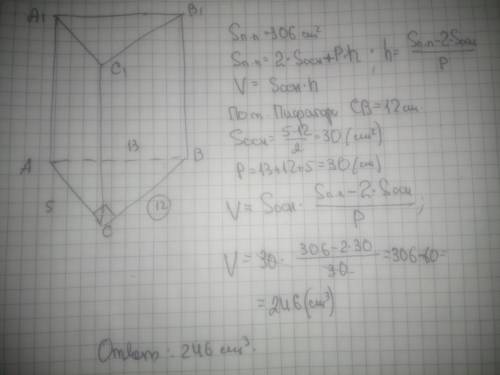 A₁ B₁
C₁
A 13 B
5 12
C
Sп.п = 306 см²
Sп.п = 2·Sосн + P·h ; h = (Sп.п − 2·Sосн)/P
V = Sосн·h
По т. Пифагора CB = 12 см
Sосн = 5·12/2 = 30 (см²)
P = 13 + 12 + 5 = 30 (см)
V = Sосн · (Sп.п − 2·Sосн)/P ;
V = 30 · (306 − 2·30)/30 = 306 − 60 =
= 246 (см³)
Ответ: 246 см³.